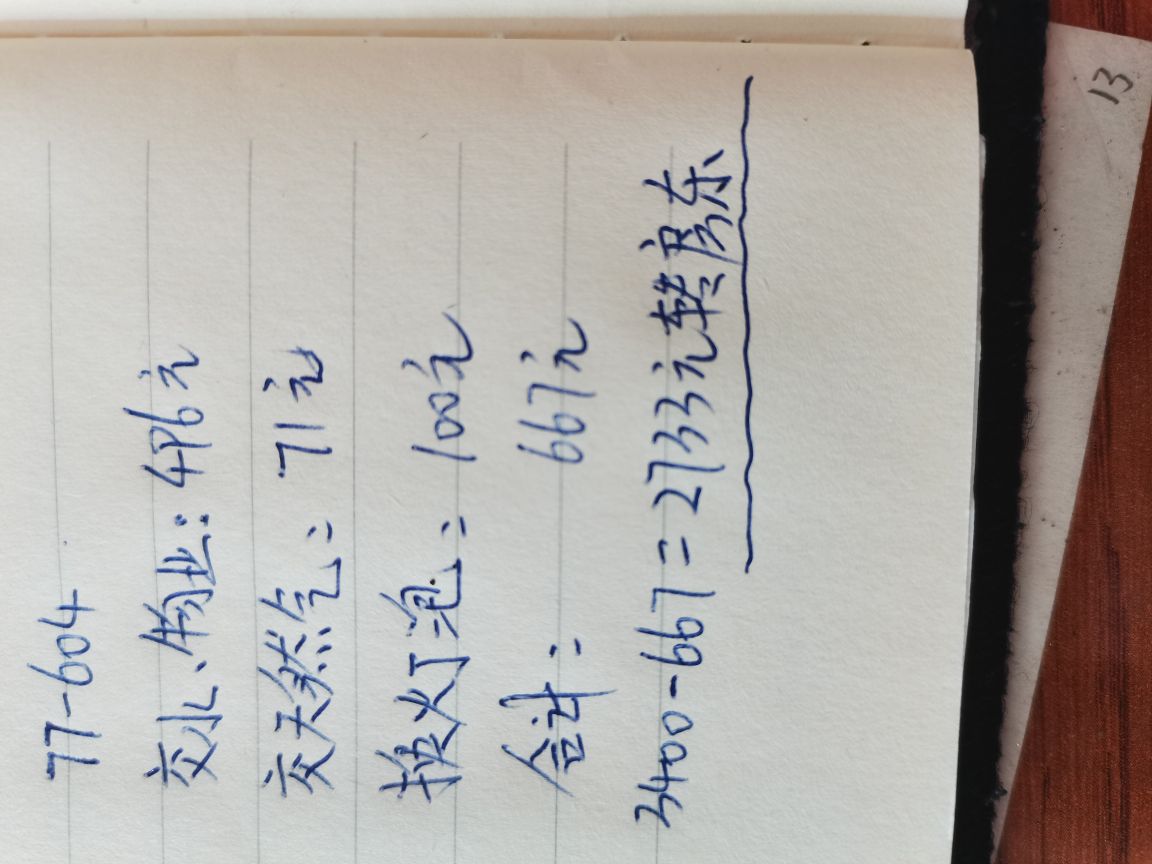 77-604
交水、物业：496元
交天然气：71元
换灯泡：100元
合计：667元
3400-667=2733元转房东
13